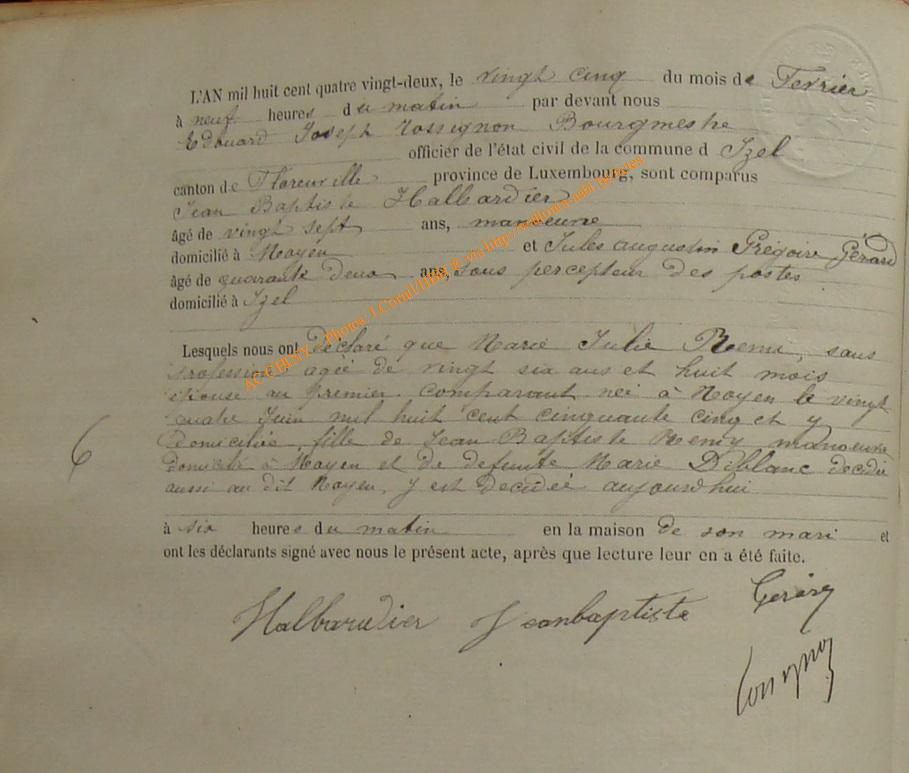 L'AN mil huit cent quatre vingt-deux, le vingt cinq du mois de Fevrier
à neuf heures du matin par devant nous
Edouard Joseph Rossignon Bourgmestre
officier de l'état civil de la commune d Izel
canton de Florenville province de Luxembourg, sont comparus
Jean Baptiste Halbardier
âgé de vingt sept ans, manoeuvre
domicilié à Moyen et Jules augustin Grégoire Gérard
âgé de quarante deux ans, sous percepteur des postes
domicilié à Izel
Lesquels nous ont déclaré que Marie Julie Remy, sans
profession agée de vingt six ans et huit mois
épouse au premier comparant née à Moyen le vingt
quatre Juin mil huit cent cinquante cinq et y
domiciliée, fille de Jean Baptiste Remy manoeuvre
domicilié à Moyen et de defunte Marie Diblanc décédée
aussi au dit Moyen, y est décédée aujourd'hui
6
à six heures du matin en la maison de son mari et
ont les déclarants signé avec nous le présent acte, après que lecture leur en a été faite.
Halbardier Jeanbaptiste Gérard
Rossignon